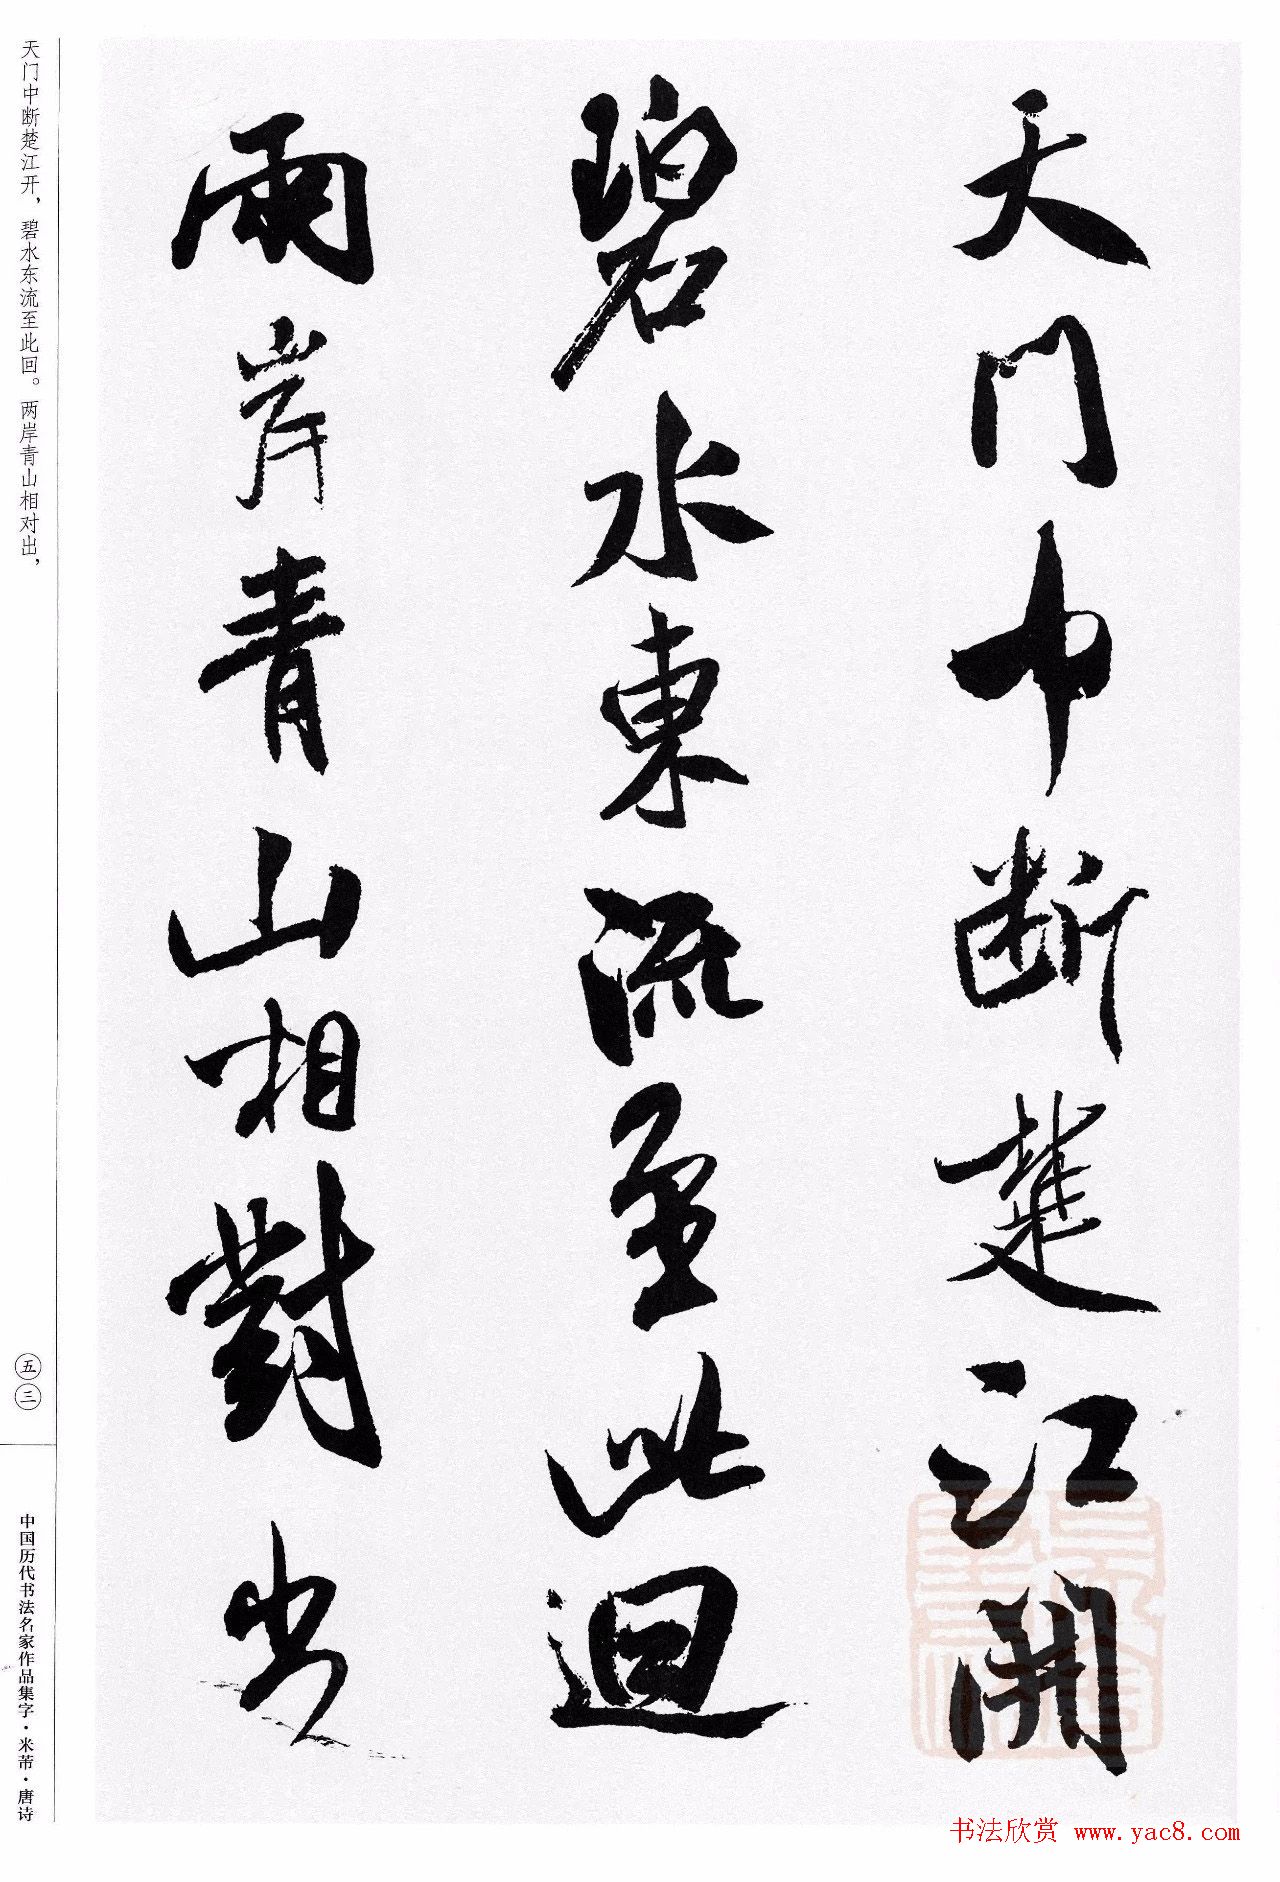 天門中斷楚江開
碧水東流至此迴
兩岸青山相對出
天门中断楚江开，碧水东流至此回。两岸青山相对出，
五三
中国历代书法名家作品集字·米芾·唐诗
书法欣赏 www.yac8.com